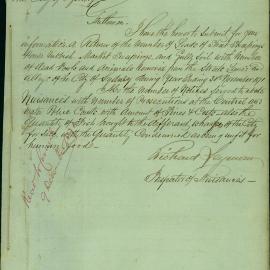 Gentlemen
I have the honor to submit for your
information a Return of the Number of Loads of Street Sweepings
House Rubbish Market Sweepings and Gully Soil with Number
of dead Dogs and Animals removed from the Streets Lanes and
Alleys of the City of Sydney during Year Ending 31 December
Also the Number of Notices served to abate
Nuisances with Number of Prosecutions at the Central and
Water Police Courts with Amount of Fines & Costs also the
Quantity of Fish brought to the different wharfs of the City
for Sale with the Quantity Condemned as being unfit for
human food
Richard Seymour
Inspector of Nuisances